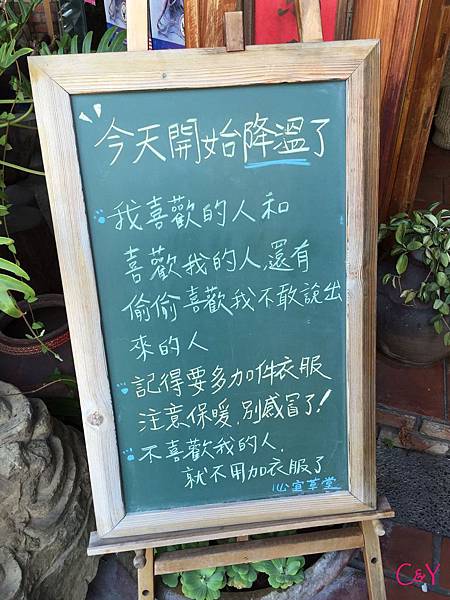 今天開始降溫了
我喜歡的人和
喜歡我的人,還有
偷偷喜歡我不敢說出
來的人
記得要多加件衣服
注意保暖,別感冒了!
不喜歡我的人,
就不用加衣服了
心宣草堂
C&Y